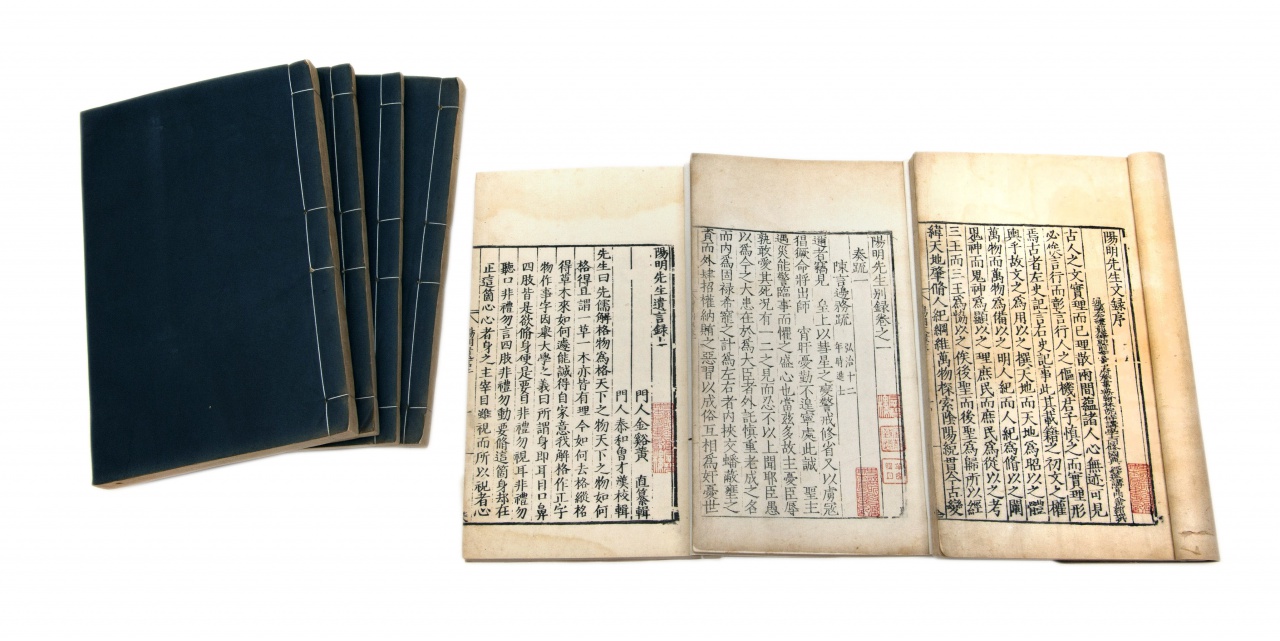 陽明先生文錄序
古人之文實理而已理散兩間蘊諸人心無迹可見
必從言行而彰言行人之樞機君子慎之而實理形
焉古者左史記言右史記事此其載籍之初文之權
輿乎故文之為用以之撰天地而天地為昭以之體
萬物而萬物為備以之明人紀而人紀為脩以之闡
鬼神而鬼神為顯以之理庶民而庶民為從以之考
三王而三王為協以之俟後聖而後聖為歸所以經
緯天地肇脩人紀綱維萬物探索陰陽統貫今古變
陽明先生別錄卷之一
奏疏一
陳言邊務疏 弘治十二年時進士
邇者竊見 皇上以彗星之變警戒修省又以虜寇
猖獗命將出師 宵旰憂勤不遑寧處此誠 聖主
遇災能警臨事而懼之盛心也當茲多故主憂臣辱
孰敢愛其死況有一二之見而忍不以上聞耶臣愚
以為今之大患在於為大臣者外託慎重老成之名
而內為固祿希寵之計為左右者內挾交蟠蔽壅之
資而外肆招權納賄之惡習以成俗互相為奸憂世
陽明先生遺言錄上
門人金谿黃 直纂輯
門人泰和曾才漢校輯
先生曰先儒解格物為格天下之物天下之物如何
格得且謂一草一木亦皆有理今如何去格縱格
得草木來如何邊能誠得自家意我解格作正字
物作事字因舉大學之義曰所謂身即耳目口鼻
四肢皆是欲脩身便是要目非禮勿視耳非禮勿
聽口非禮勿言四肢非禮勿動要脩這箇身好在
正這箇心心者身之主宰目雖視而所以視者心